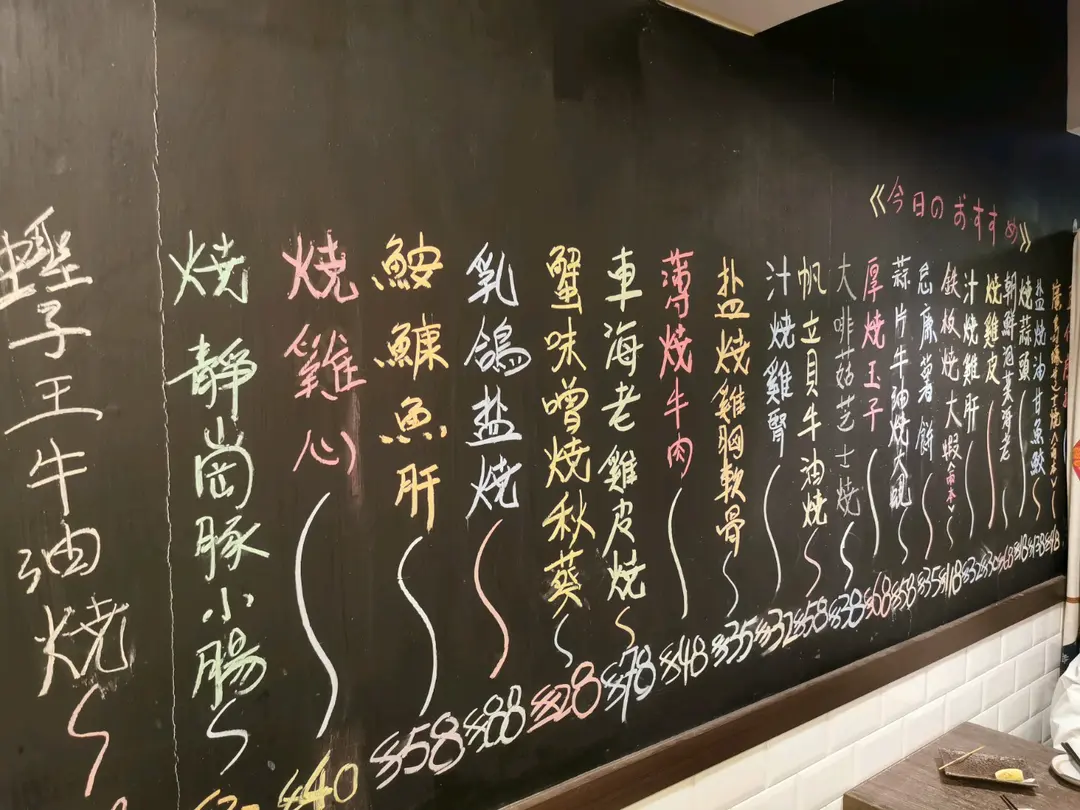 《今日のおすすめ》
盐燒油甘魚鮫 $138
燒蒜頭 $18
朝鮮泡菜海老 $68
燒雞皮 $30
汁燒雞肝 $32
鉄板燒大蝦<兩本> $118
忌廉薯餅 $35
蒜片牛油燒大蜆 $58
厚燒玉子 $68
大啡菇芝士燒 $38
帆立貝牛油燒 $58
汁燒雞腎 $32
盐燒雞胸軟骨 $35
薄燒牛肉 $48
車海老雞皮燒 $78
蟹味噌燒秋葵 $28
乳鴿盐燒 $88
鮟鱇魚肝 $58
燒雞心 $40
燒靜崗豚小腸
蟶子王牛油燒